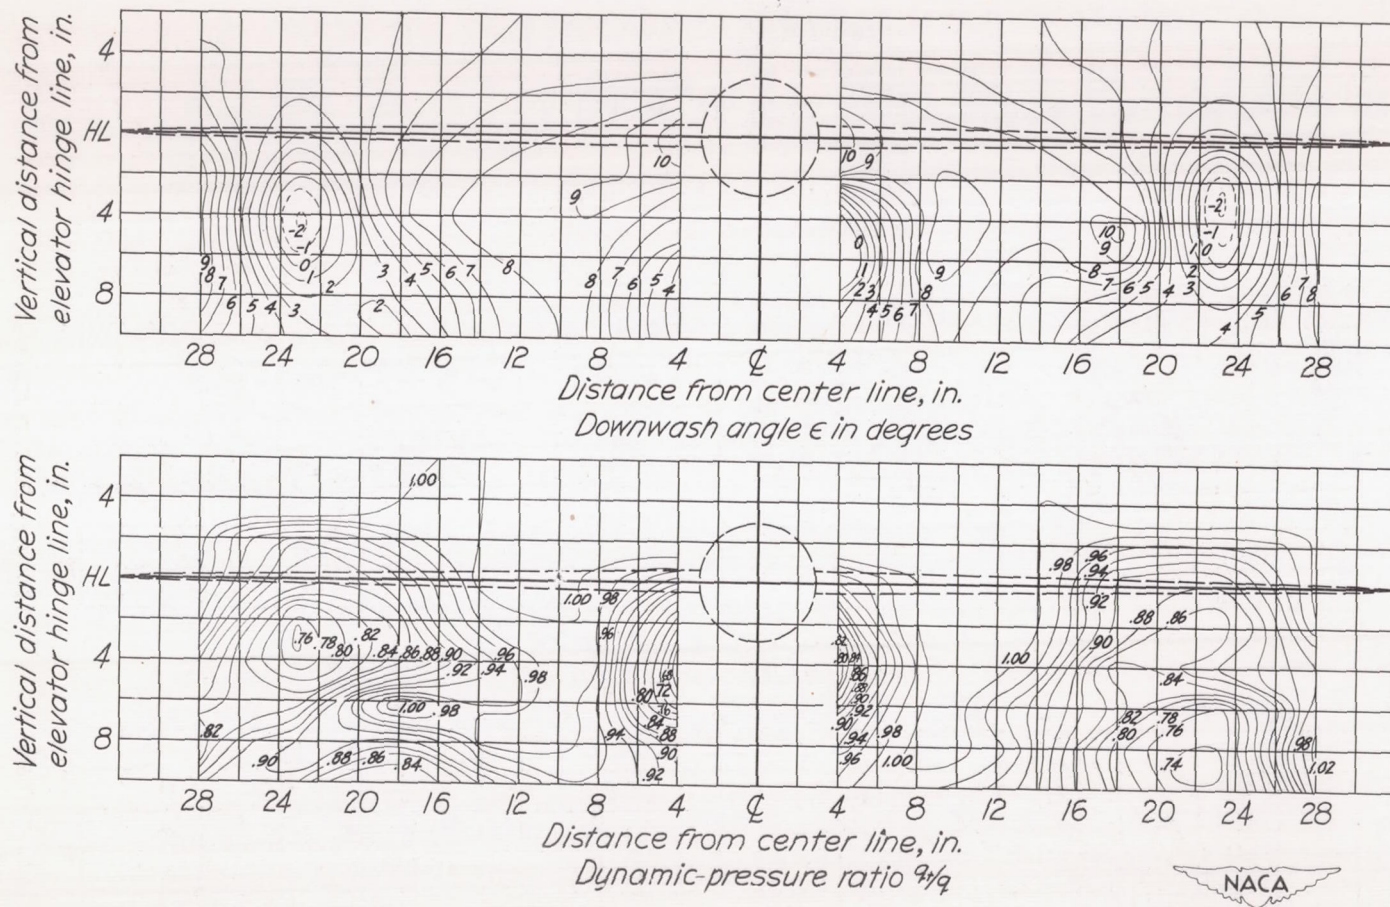 Vertical distance from
elevator hinge line, in.
4
HL
4
8
10
9
10 9
-2
-1
0
1
2
3
4 5 6 7
8
9
8
7
6 5 4 3
2
8 7 6 5 4
0
1
2 3
4 5 6 7
8
9
10
9
8
7 6 5 4 3
2
1 0
-1
-2
4 5
6 7 8
28 24 20 16 12 8 4 ℄ 4 8 12 16 20 24 28
Distance from center line, in.
Downwash angle ϵ in degrees
Vertical distance from
elevator hinge line, in.
4
HL
4
8
1.00
1.00 .98
.96
.76 .78 .80 .82 .84 .86 .88 .90
.92 .94 .96
.98
1.00 .98
.82
.90 .88 .86 .84
.68
.80 .72
.76
.84
.94 .88
.90
.92
.82
.80 .84
.86
.88
.90
.92
.90
.94 .98
.96 1.00
.98 .96
.94
.92
.88 .86
.90
1.00
.84
.82 .78
.80 .76
.74
.98
1.02
28 24 20 16 12 8 4 ℄ 4 8 12 16 20 24 28
Distance from center line, in.
Dynamic-pressure ratio qt/q
NACA